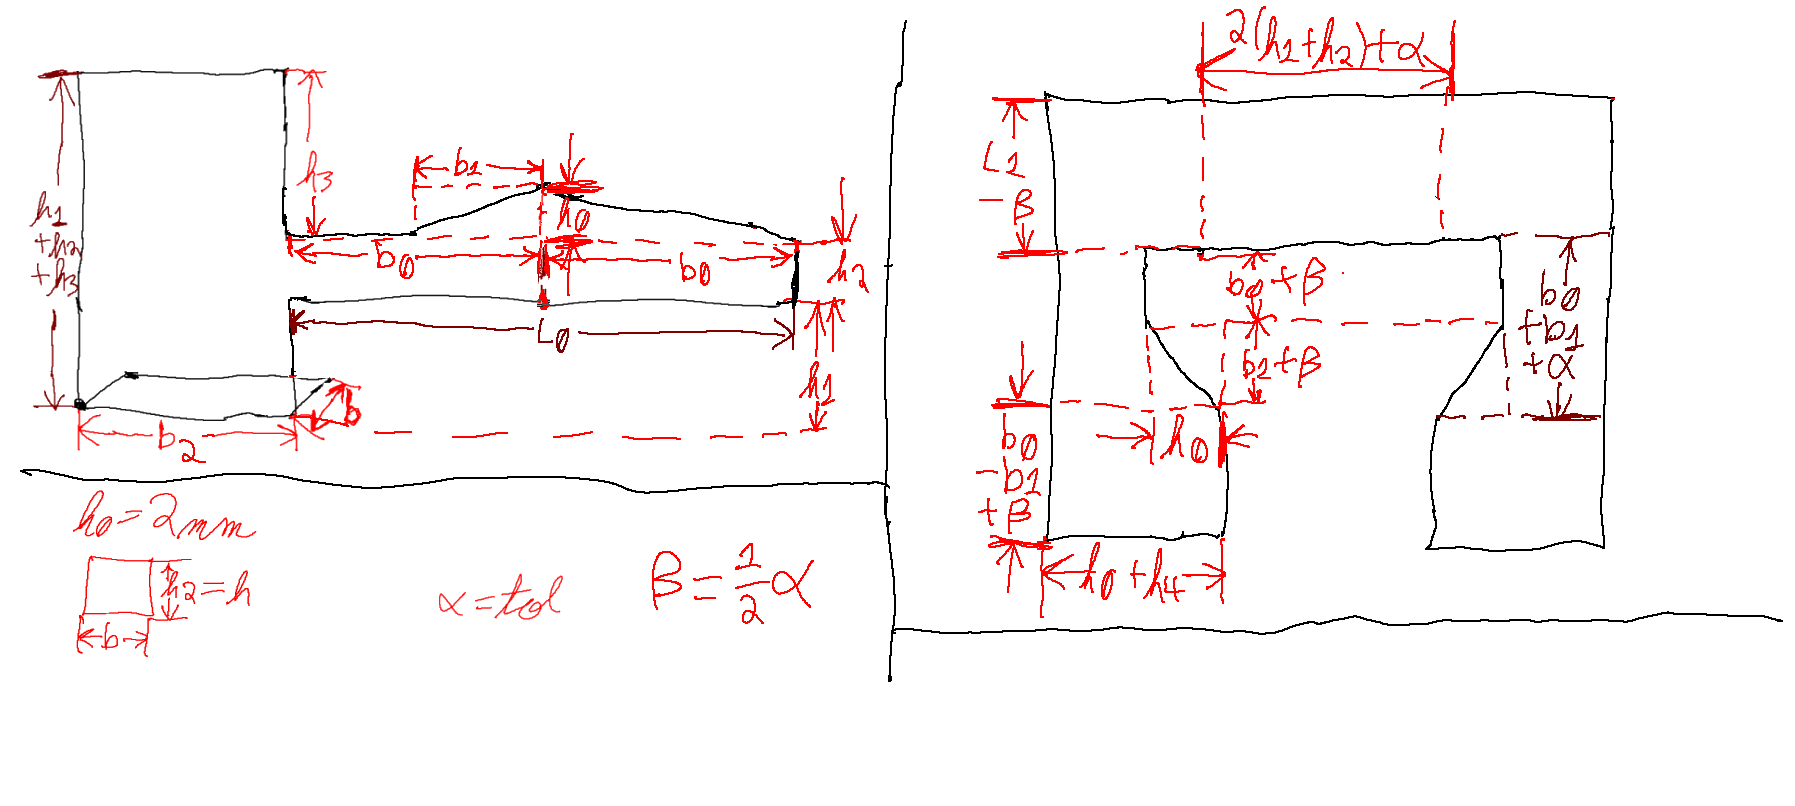 h1
+h2
+h3
h3
b1
h0
b0
b0
h2
L0
h1
b2
b
h0=2mm
h2=h
b
α=tol
β=1/2α
2(h1+h2)+α
L1
-β
b0+β
b1+β
b0
+b1
+α
h0
b0
-b1
+β
h0+h4